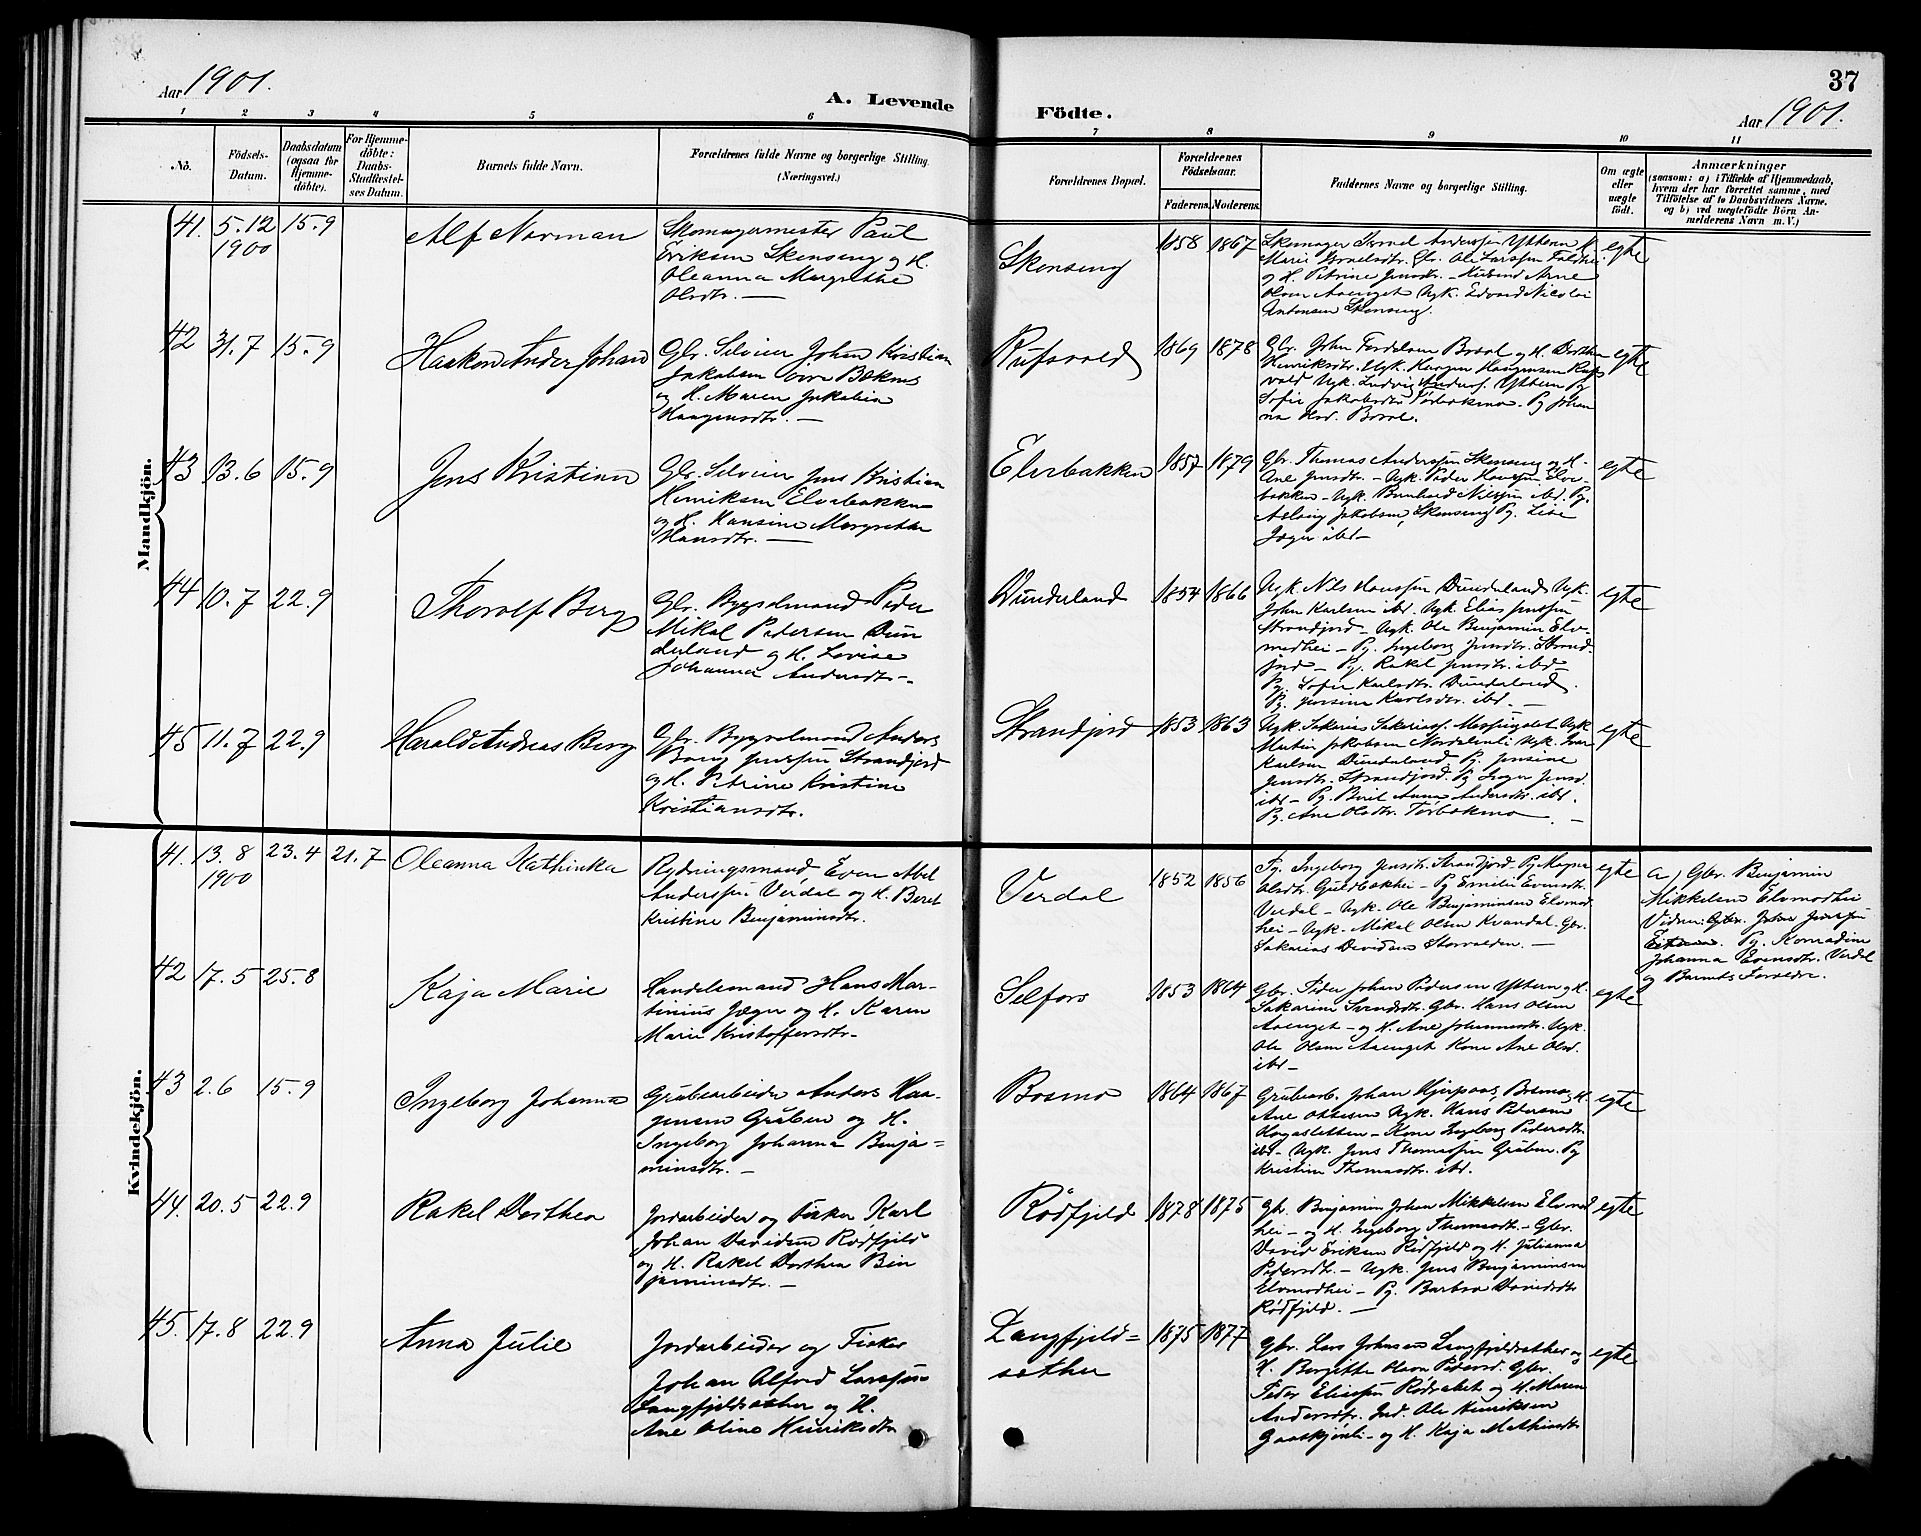 Aar 1901.
A. Levende
Födte.
37
Aar 1901.
1 2 3 4 5 6 7 8 9 10 11
No.
Födsels-
Datum.
Daabsdatum
(ogsaa for
Hjemme-
döbte).
For Hjemme-
döbte:
Daabs-
Stadfæstel-
ses Datum.
Barnets fulde Navn.
Forældrenes fulde Navne og borgerlige Stilling.
(Næringsvei.)
Forældrenes Bopæl.
Forældrenes
Födselsaar.
Faderens. Moderens.
Faddernes Navne og borgerlige Stilling.
Om ægte
eller
uægte
födt.
Anmærkninger
(saasom: a) i Tilfælde af Hjemmedaab,
hvem der har forrettet samme, med
Tilföielse af to Daabsvidners Navne.
og b) ved uægtefödte Börn An-
melderens Navn m. V.)
Mandkjön.
41. 5.12 15.9
1900
Alf Norman
Skomagermester Paul
Eriksen Skonseng og H.
Oleanna Margrethe
Olsdtr. —
Skonseng
1858 1867
Skomager Israel Anderssen Ytteren H.
Marie Israelsdtr. Gbr. Ole Larssen
og H. Petrine Jensdtr. - Husmd Arne
Olsen Aaenget Ugk. Edvard Nicolai
Antonsen Skonseng.
egte
42 31.7 15.9
Haakon Ander Johan
Gbr. Selveier Johan Kristian
Jakobsen övre Bakmo
og H. Maren Jakobia
Haagensdtr. —
1869 1878
Gbr. John Bosmo og H. Dorthea
Henriksdtr. Ugk. Haagen Haagensen
vald Ugk. Ludvig Anders. Ytteren Pg
Sofie Jakobsdtr. Pg Johan
na
egte
43 13.6 15.9
Jens Kristian
Gbr. Selveier Jens Kristian
Henriksen Elvebakken
og H. Hansine Margrethe
Hansdtr. —
Elvebakken
1857 1879
Gbr. Thomas Anderssen Skonseng og H.
Ane Jensdtr. - Ugk. Peder Hanssen Elve-
bakken - Ugk. Bernhard Nilssen ibd. Pg.
Aslaug Jakobsen, Skonseng Pg. Lise
Jæger ibd -
egte
44 10.7 22.9
Thorolf Berg
Gbr. Bygselmand Peder
Mikal Pedersen Dun
derland og H. Lovise
Johanna Andersdtr. -
Dunderland
1854 1866
Ugk. Nils Hanssen Dunderland Ugk.
John Karlsen ibd. Ugk. Elias Jenssen
Strandjord - Ugk. Ole Benjaminsen Elv-
modhei - Pg. Ingeborg Jensdtr. Strand-
jord - Pg. Rakel Jensdtr. ibd
Pg. Sofie Karlsdtr. Dunderland.
Pg. Jorsine Karlsdtr. ibd. —
egte
45 11.7 22.9
Harald Andreas Berg
Gbr. Bygselmand Anders
Berg Jenssen Strandjord
og H. Petrine Kristine
Kristiansdtr.
Strandjord
1853 1863
Ugk. Sakarias Sakarias. Messingslet Ugk
Martin Jakobsen Nordalenli Ugk. Ivar
Karlsen Dunderland Pg. Jensine
Jensdtr. Strandjord. Pg Inger Jensd.
ibd - Pg. Berit Anna Andersdtr. ibd.
Pg. Ane Olsdtr. Tørbækmo. —
egte
Kvindekjön.
41. 13.8 23.4 21.7
1900
Oleanna Kathinka
Rydningsmand Even Abel
Anderssen Verdal og H. Beret
Kristine Benjaminsdtr.
Verdal
1852 1856
Pg. Ingeborg Jensdtr. Strandjord - Pg Magna
Olsdtr. Guldbækhei - Pg Emelie Evensdtr.
Verdal - Ugk. Ole Benjaminsen Elvmod
hei - Ugk. Mikal Olsen Kvandal. Gbr.
Sakarias Davidsen Storvolden. —
egte
a) Gbr. Benjamin
Mikkelsen Elvmodhei
Vidner: Gbr. Johan Jenssen
Pg. Konradine
Johanna Evensdtr. Verdal
og Barnets Forældre.
42 17.5 25.8
Kaja Marie
Handelsmand Hans Mar-
tinius Jæger og H. Karen
Marie Kristoffersdtr. -
Selfors
1853 1864
Gbr. Peder Johan Pedersen Ytteren og H.
Sakarine Svendsdtr. Gbr. Hans Olsen
Aaenget - og H. Ane Johannesdtr. Ugk.
Ole Olsen Aaenget Kone Ane Olsd.
ibd -
egte
43 2.6 15.9
Ingeborg Johanna
Grubearbeider Anders Haa-
gensen Gruben og H.
Ingeborg Johanna Benja-
minsdtr. -
Bosmo
1864 1867
Grubearb. Johan Hjerpaas, Bosmo og H.
Ane Ottesen Ugk. Hans Pedersen
Hogasletten - Kone Ingeborg Pedersdtr.
ibd - Ugk. Jens Thomassen Gruben. Pg
Kristine Thomasdtr. ibd.
egte
44. 20.5 22.9
Rakel Dorthea
Jordarbeider og Fisker Karl
Johan Davidsen Rödfjeld
og H. Rakel Dorthea Ben
jaminsdtr. -
Rödfjeld
1878 1875
Gbr. Benjamin Johan Mikkelsen Elvmod
hei - og H. Ingeborg Thomasdtr. - Gbr.
David Eriksen Rödfjeld og H. Julianna
Pedersdtr. - Ugk. Jens Benjaminsen
Elvmodhei - Pg. Barbra Davidsdtr.
Rödfjeld. —
egte
45. 17.8 22.9
Anna Julie
Jordarbeider og Fisker
Johan Alfred Larssen
Langfjeldsæther og H.
Ane Oline Henriksdtr
Langfjeld=
sæther
1875 1877
Gbr. Lars Johnsen Langfjeldsæther og
H. Birgitte Olava Pedersd. Gbr.
Peder Eliassen og H. Maren
Andersdtr. Ind. Ole Henriksen
Gaaskjønli - og H. Kaja Mathisdtr
egte